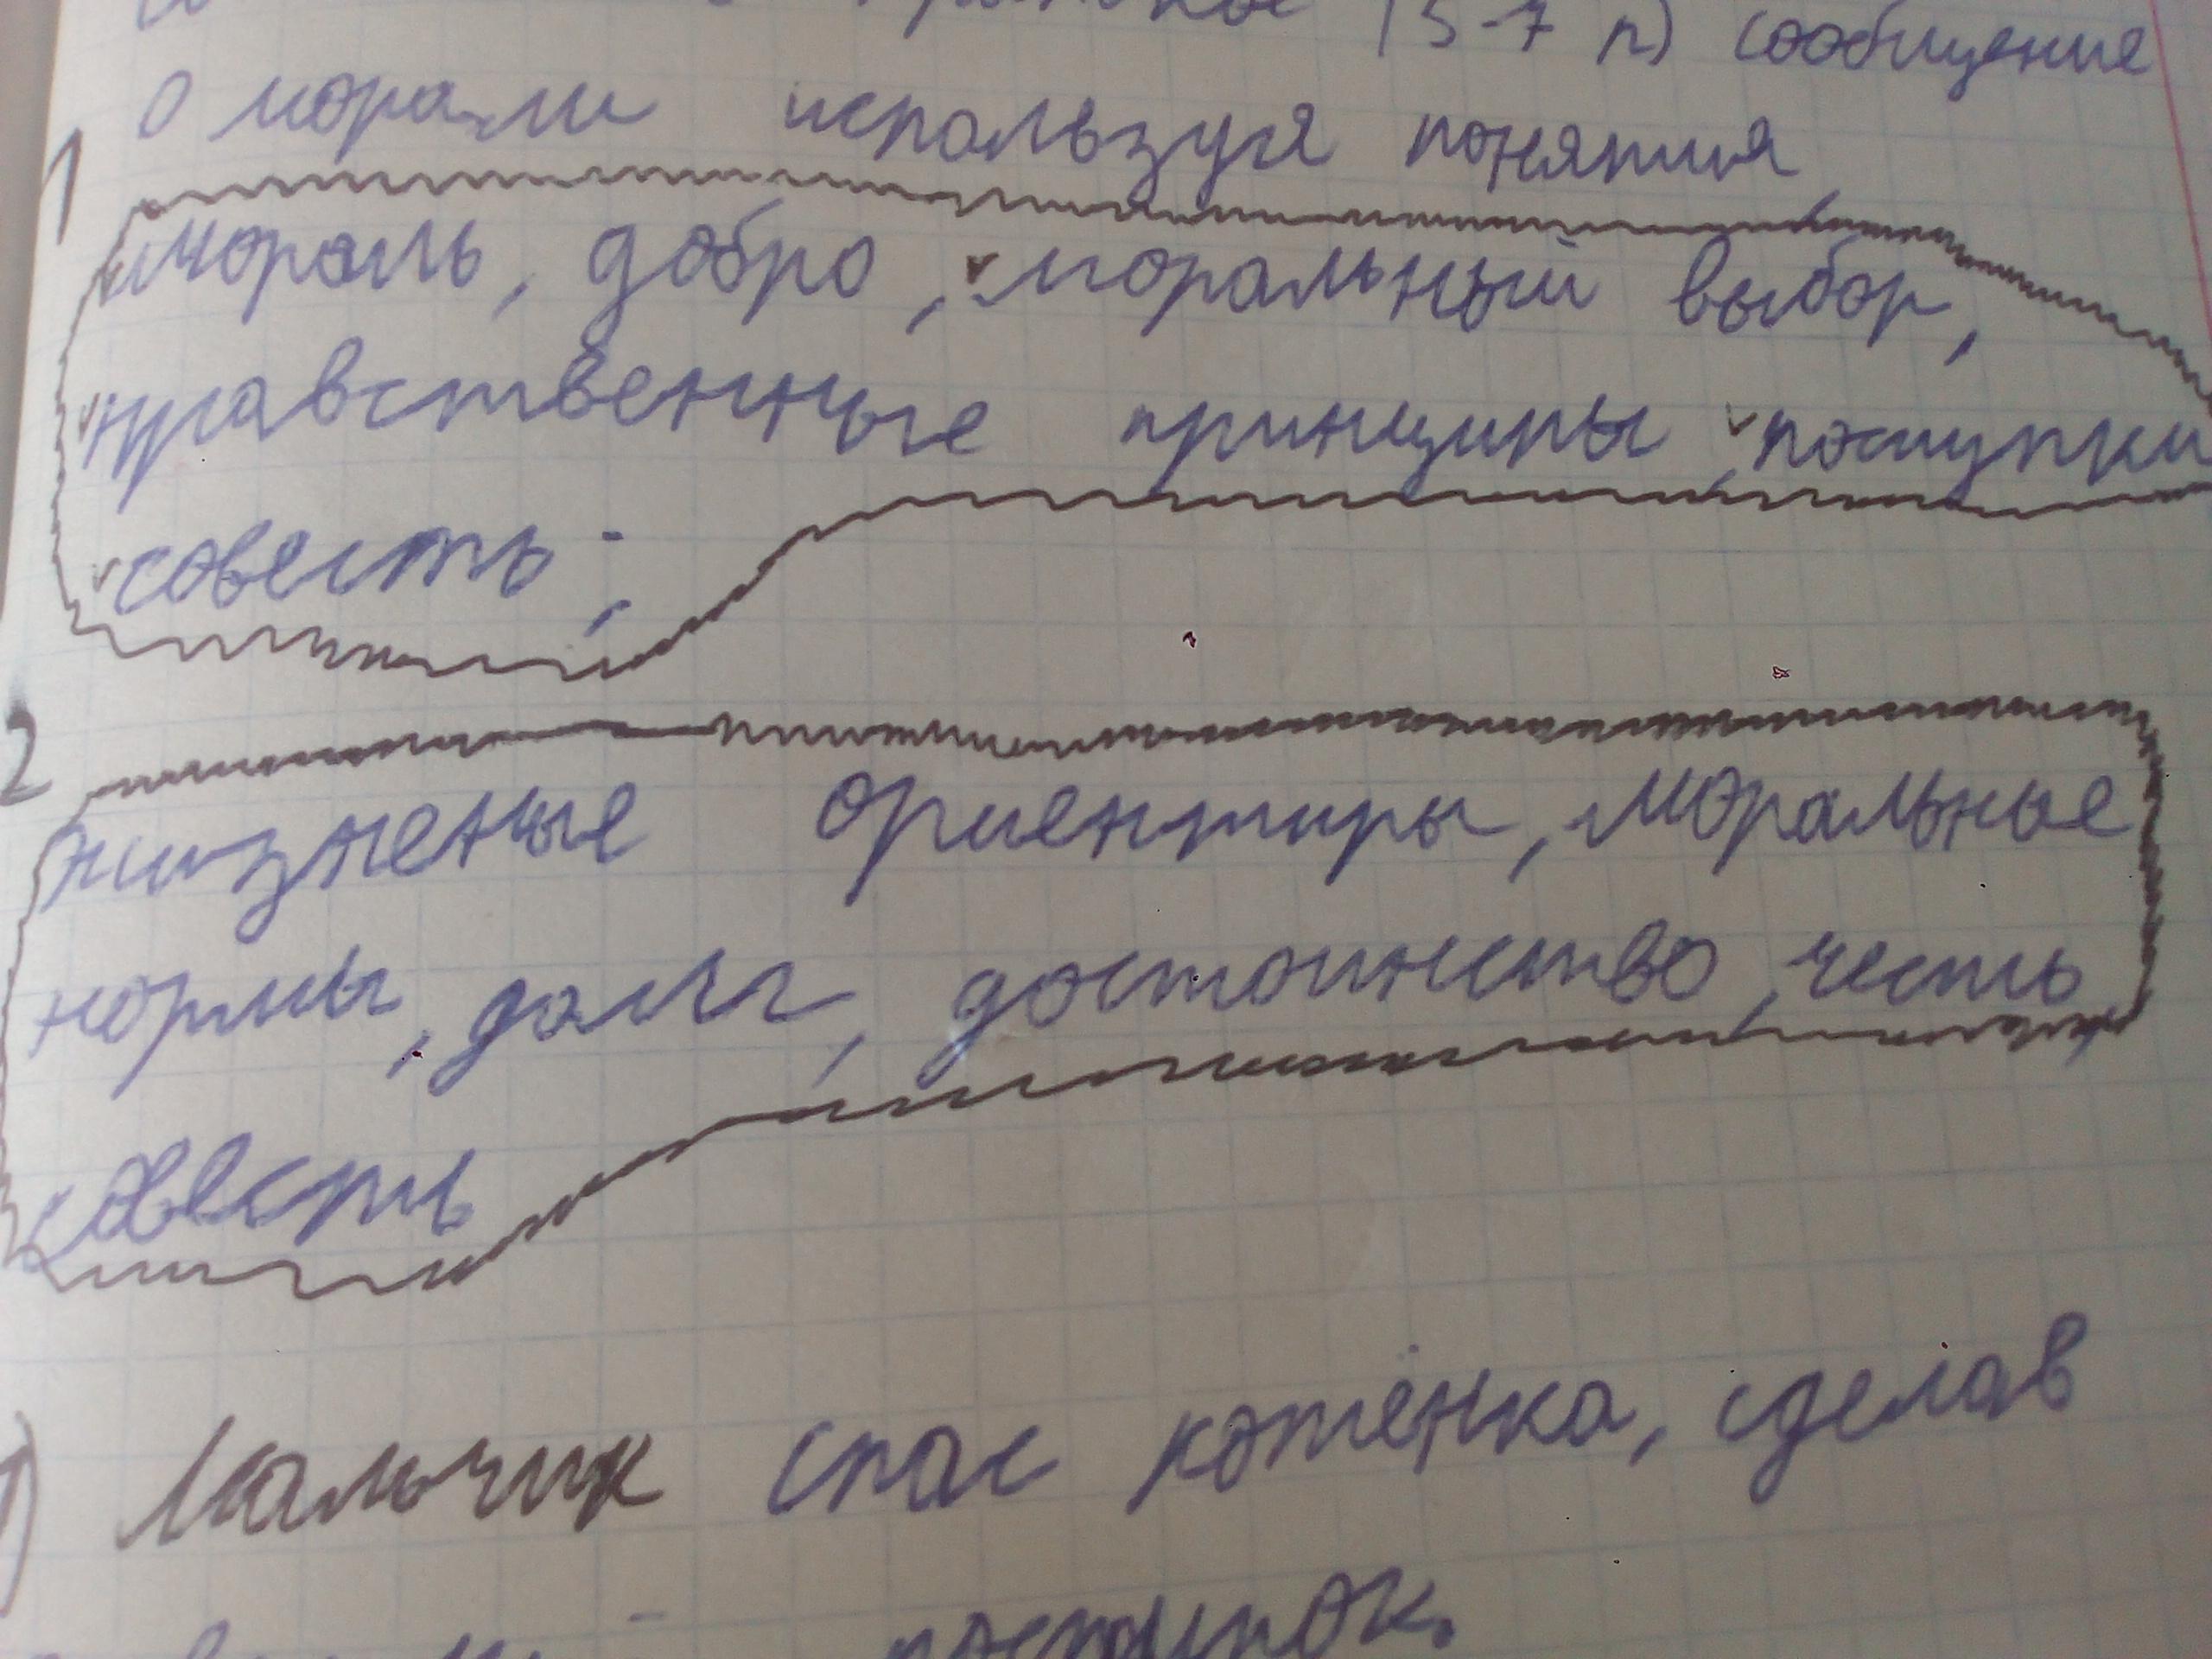 (5-7 п) сообщение
о морали используя понятия
1
мораль, добро, моральный выбор,
нравственные принципы, поступки
совесть;
2
жизненые ориентиры, моральные
нормы, долг, достоинство, честь
совесть
Мальчик спас котёнка, сделав
поступок.